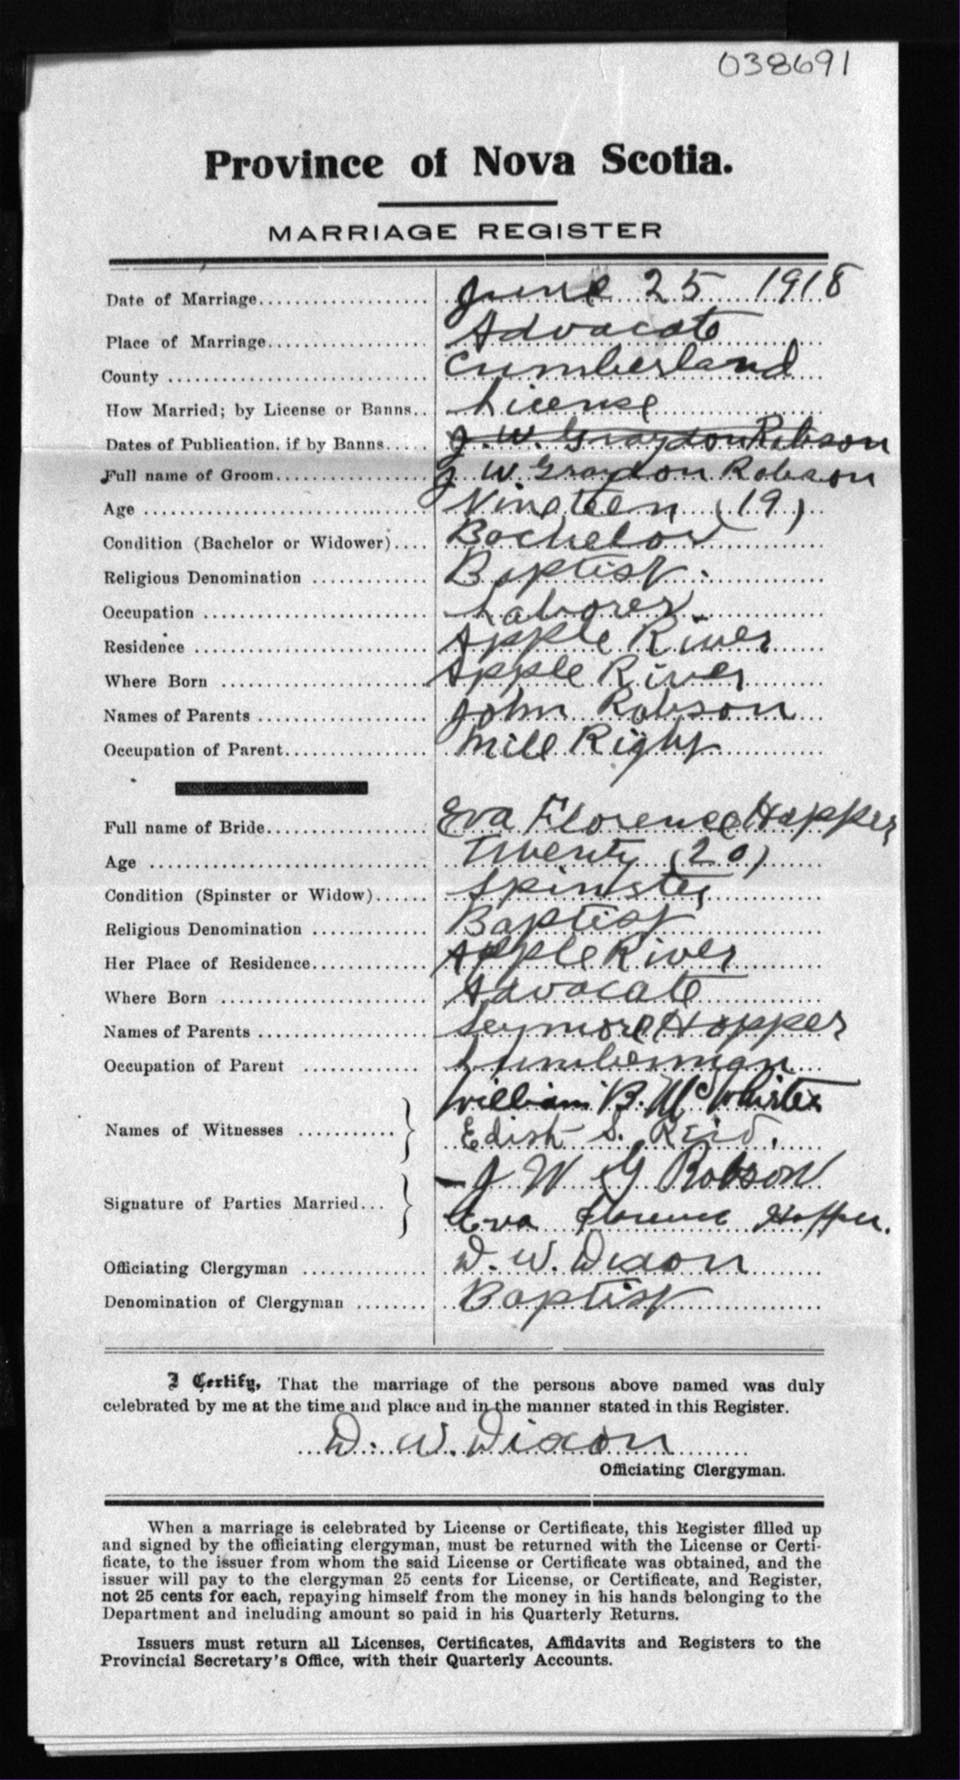 038691
Province of Nova Scotia.
MARRIAGE REGISTER
Date of Marriage.................. June 25 1918
Place of Marriage.................. Advocate
County ............................. Cumberland
How Married; by License or Banns.. License
Dates of Publication, if by Banns..... J. W. Graydon Robson
Full name of Groom................. J W. Graydon Robson
Age ................................ Nineteen (19)
Condition (Bachelor or Widower).... Bachelor
Religious Denomination ............. Baptist.
Occupation ......................... Laborer
Residence .......................... Apple River
Where Born ........................ Apple River
Names of Parents ................... John Robson
Occupation of Parent................ Mill Right
Full name of Bride.................. Eva Florence Hopper
Age ................................ Twenty (20)
Condition (Spinster or Widow)...... Spinster
Religious Denomination ............. Baptist
Her Place of Residence............. Apple River
Where Born ........................ Advocate
Names of Parents ................... Seymore Hopper
Occupation of Parent ............. Lumberman
William B. McWhirter
Names of Witnesses ...........
Edish S. Reid.
J W G Robson
Signature of Parties Married...
Eva Florence Hopper.
Officiating Clergyman ............. D. W. Dixon
Denomination of Clergyman ........ Baptist
I Certify, That the marriage of the persons above named was duly
celebrated by me at the time and place and in the manner stated in this Register.
D. W. Dixon
Officiating Clergyman.
When a marriage is celebrated by License or Certificate, this Register filled up
and signed by the officiating clergyman, must be returned with the License or Certi-
ficate, to the issuer from whom the said License or Certificate was obtained, and the
issuer will pay to the clergyman 25 cents for License, or Certificate, and Register,
not 25 cents for each, repaying himself from the money in his hands belonging to the
Department and including amount so paid in his Quarterly Returns.
Issuers must return all Licenses, Certificates, Affidavits and Registers to the
Provincial Secretary's Office, with their Quarterly Accounts.